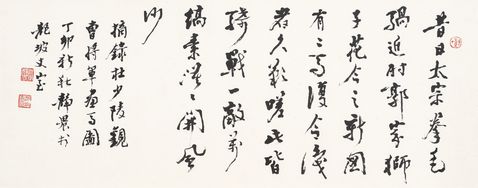 昔日太宗拳毛
騧近時郭家獅
子花今之新圖
有二馬復令識
者久歎嗟此皆
騎戰一敵萬
縞素漠〻開風
沙
摘錄杜少陵觀
曹將軍畫馬圖
丁卯新秋靜農於
龍坡丈室